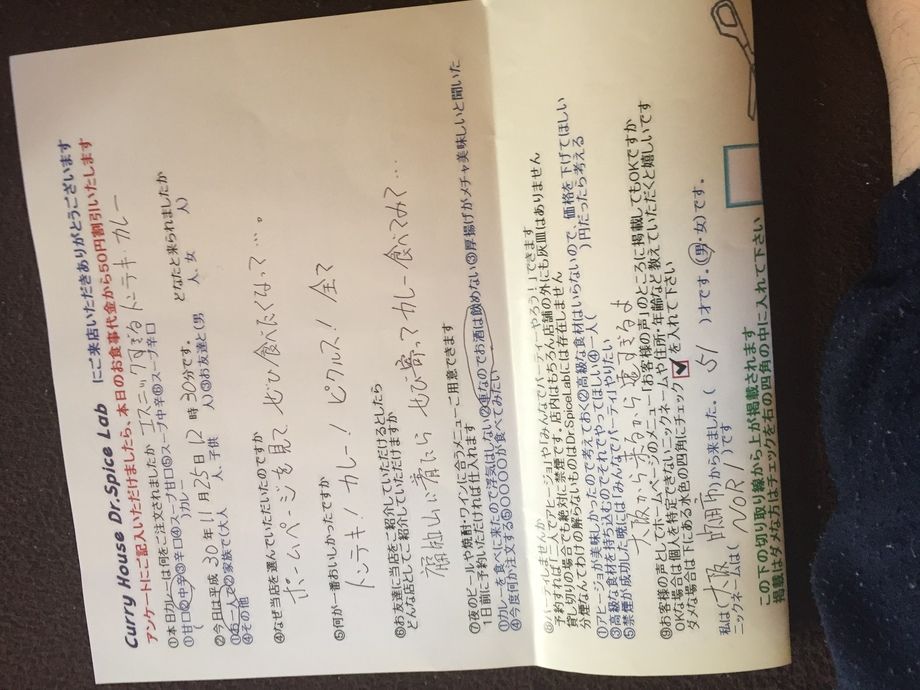 Curry House Dr.Spice Lab にご来店いただきありがとうございます
アンケートにご記入いただけましたら、本日のお食事代金から50円割引いたします
①本日カレーは何をご注文されましたか エスニックすぎるトンテキカレー
①甘口②中辛③辛口④スープ甘口⑤スープ中辛⑥スープ辛口
( )カレー
②今日は平成 30年 11月 25日 12時 30分です。 どなたと来られましたか
①お一人で②ご家族で(大人 人、子供 人)③お友達と(男 人、女 人)
④その他
④なぜ当店を選んでいただいたのですか
ホームページを見て ぜひ食べたくなって…。
⑤何が一番おいしかったですか
トンテキ! カレー! ピクルス! 全て
⑥お友達に当店をご紹介していただけるとしたら
どんな店としてご紹介していただけますか
ぜひ寄って カレー食べてみて…
⑦夜のビールや焼酎・ワインに合うメニューご用意できます
1日前に予約いただければ仕入れます
①カレーを食べに来たので浮気はしない②車なのでお酒は飲めない③厚揚げがメチャ美味しいと聞いた
④今度何か注文する⑤〇〇〇〇が食べてみたい
予約すれば二人でアヒージョや「みんなでパーティーやろう!」できます
貸し切りの場合でも絶対に禁煙です。店内はもちろん店舗の外にも灰皿はありません
分煙なんてわけの解らないものはDr.SpiceLabには存在しません
①アヒージョが美味しかったので考えておく②高級な食材はいらないので、価格を下げてほしい
③高級な食材を持ち込むのでそれでやってほしい④一人( )円だったら考える
⑤禁煙が成功した暁には「みんなでパーティ」やりたい
大阪から来るから遠すぎるよ
⑨お客様の声としてホームページのメニュー「お客様の声」のところに掲載してもOKですか
OKな場合は個人を特定できないニックネームや住所・年齢など教えていただくと嬉しいです
ダメな場合は下にある水色の四角にチェック☑を入れて下さい
私は(大阪府)から来ました。( 51 )才です。(男・女)です。
ニックネームは( NORI )です
この下の切り取り線から上が掲載されます
掲載はダメな方はチェックを右の四角の中に入れて下さい